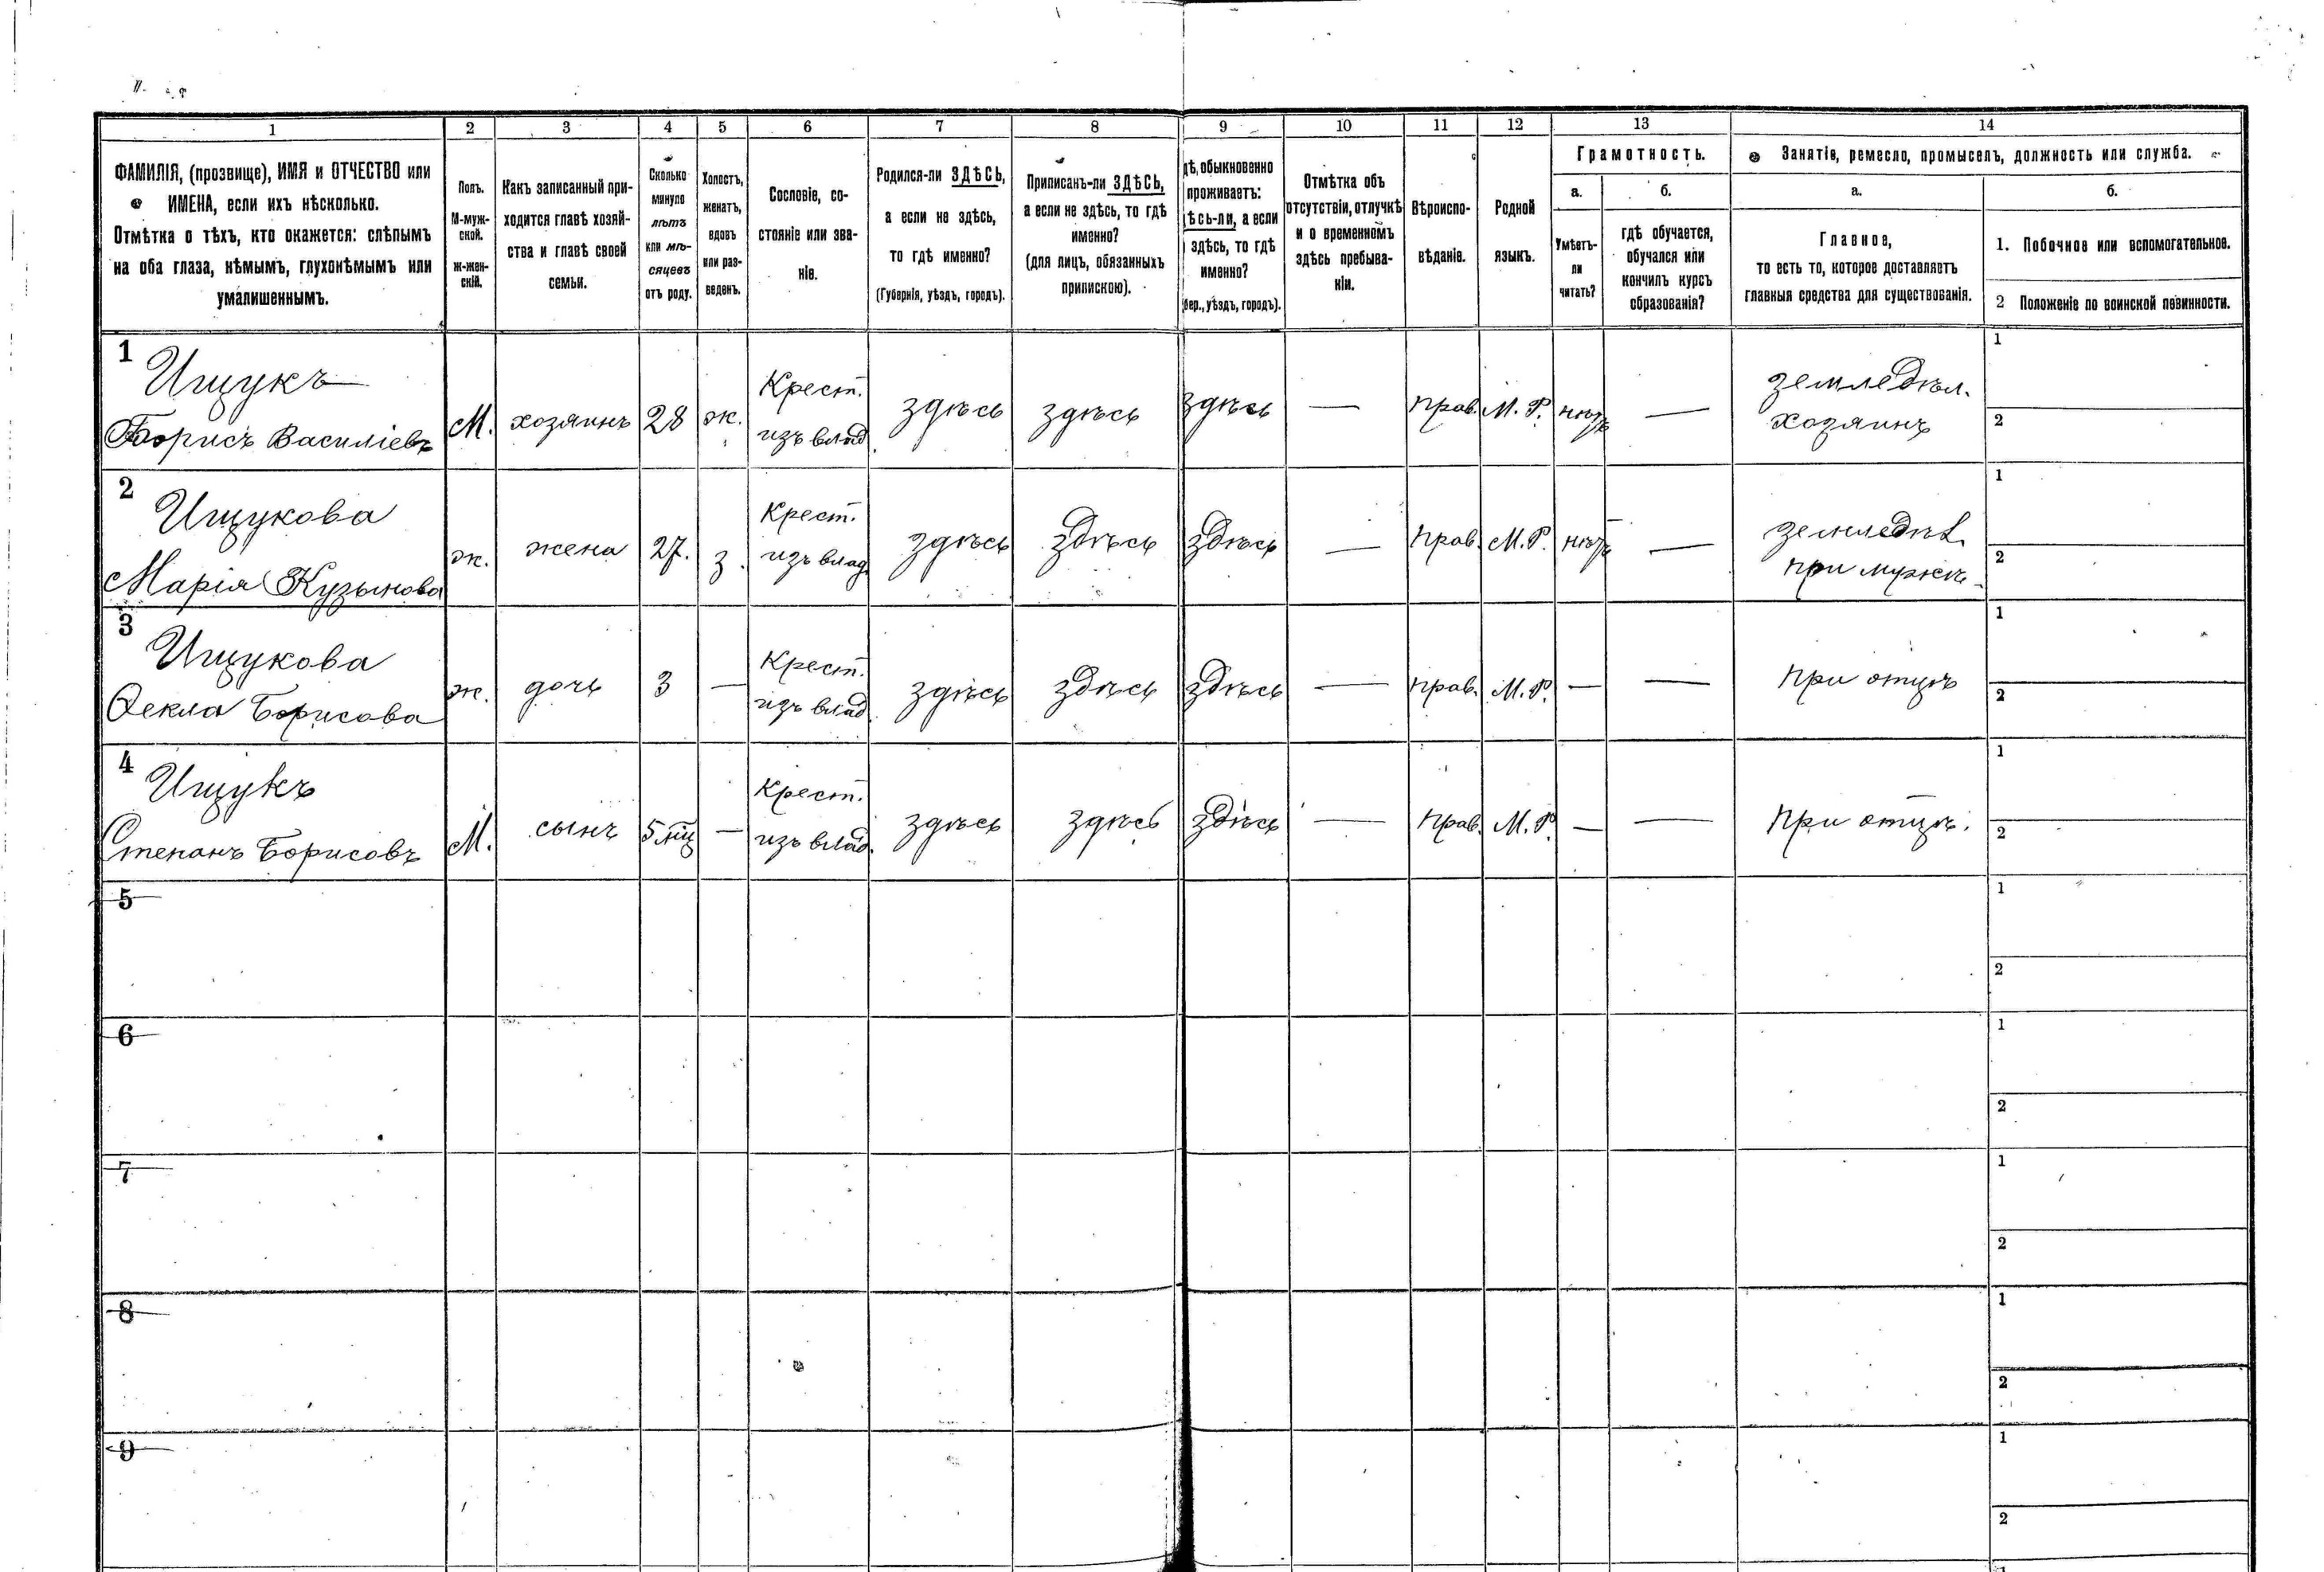 1 2 3 4 5 6 7 8 9 10 11 12 13 14
ФАМИЛІЯ, (прозвище), ИМЯ и ОТЧЕСТВО или
ИМЕНА, если ихъ нѣсколько.
Отмѣтка о тѣхъ, кто окажется: слѣпымъ
на оба глаза, нѣмымъ, глухонѣмымъ или
умалишеннымъ.
Полъ.
М-муж-
ской.
ж-жен-
скій.
Какъ записанный при-
ходится главѣ хозяй-
ства и главѣ своей
семьи.
Сколько
минуло
лѣтъ
или мѣ-
сяцевъ
отъ роду.
Холостъ,
женатъ,
вдовъ
или раз-
веденъ.
Сословіе, со-
стояніе или зва-
ніе.
Родился-ли ЗДѢСЬ,
а если не здѣсь,
то гдѣ именно?
(Губернія, уѣздъ, городъ).
Приписанъ-ли ЗДѢСЬ,
а если не здѣсь, то гдѣ
именно?
(для лицъ, обязанныхъ
припискою).
дѣ, обыкновенно
проживаетъ:
ѣсь-ли, а если
здѣсь, то гдѣ
именно?
бер., уѣздъ, городъ).
Отмѣтка объ
отсутствіи, отлучкѣ
и о временномъ
здѣсь пребыва-
ніи.
Вѣроиспо-
вѣданіе.
Родной
языкъ.
Грамотность.
а.
Умѣетъ-
ли
читать?
б.
гдѣ обучается,
обучался или
кончилъ курсъ
образованія?
Занятіе, ремесло, промыселъ, должность или служба.
а.
Главное,
то есть то, которое доставляетъ
главныя средства для существованія.
б.
1. Побочное или вспомогательное.
2 Положеніе по воинской повинности.
1
Ищукъ
Борисъ Василіевъ
М.
хозяинъ
28
ж.
Крест.
изъ влад
здѣсь
здѣсь
здѣсь
—
прав.
М. Р.
нѣтъ
—
земледѣл.
хозяинъ
1
2
2
Ищукова
Марія Кузьмова
ж.
жена
27.
з.
Крест.
изъ влад
здѣсь
здѣсь
здѣсь
—
прав.
М. Р.
нѣтъ
—
земледѣл.
при мужѣ
1
2
3
Ищукова
Ѳекла Борисова
ж.
дочь
3
—
Крест.
изъ влад.
здѣсь
здѣсь
здѣсь
—
прав.
М. Р.
—
—
при отцѣ
1
2
4
Ищукъ
Степанъ Борисовъ
М.
сынъ
5 мц
—
Крест.
изъ влад.
здѣсь
здѣсь
здѣсь
—
прав.
М. Р.
—
—
при отцѣ.
1
2
5
1
2
6
1
2
7
1
2
8
1
2
9
1
2